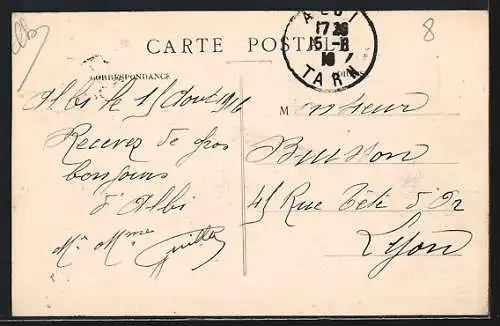 Albi
8
CARTE POSTALE
ALBI
17 20
15-8
16
TARN
CORRESPONDANCE
Albi le 15 Aout 1916
Recevez de gros
bonjours
d'Albi
Mr Mme
Monsieur
Buisson
45 Rue Tête d'Or
Lyon